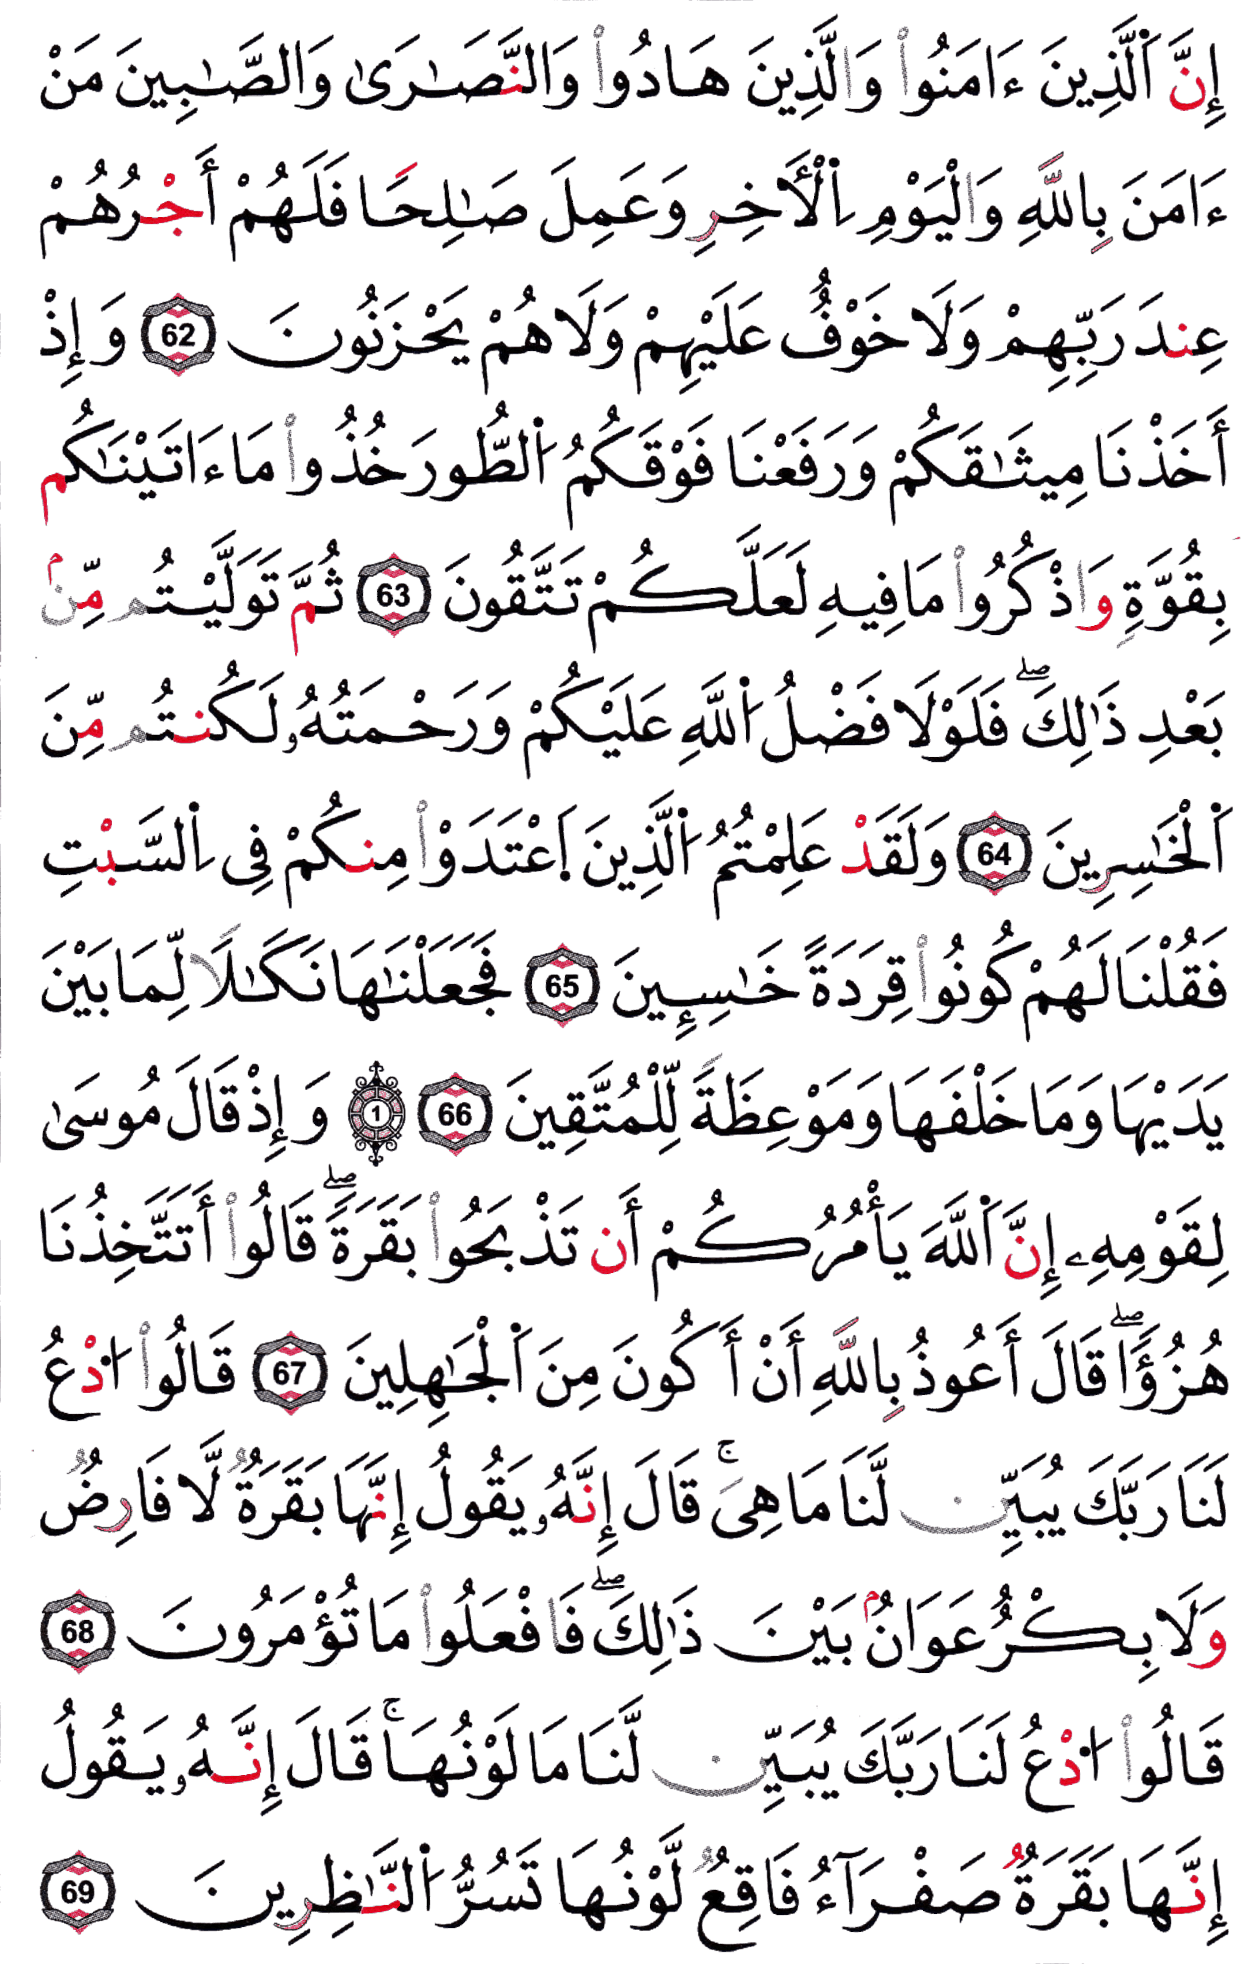 إِنَّ اَ۬لَّذِينَ ءَامَنُواْ وَالَّذِينَ هَادُواْ وَالنَّصَٰرَىٰ وَالصَّٰبِينَ مَنْ
ءَامَنَ بِاللَّهِ وَالْيَوْمِ اِ۬لْأَخِرِ وَعَمِلَ صَٰلِحًا فَلَهُمْ أَجْرُهُمْ
عِندَ رَبِّهِمْ وَلَا خَوْفٌ عَلَيْهِمْ وَلَا هُمْ يَحْزَنُونَ 62 وَإِذْ
أَخَذْنَا مِيثَٰقَكُمْ وَرَفَعْنَا فَوْقَكُمُ اُ۬لطُّورَ خُذُواْ مَا ءَاتَيْنَٰكُم
بِقُوَّةٍ وَاذْكُرُواْ مَا فِيهِ لَعَلَّكُمْ تَتَّقُونَ 63 ثُمَّ تَوَلَّيْتُم مِّنۢ
بَعْدِ ذَٰلِكَۖ فَلَوْلَا فَضْلُ اُ۬للَّهِ عَلَيْكُمْ وَرَحْمَتُهُۥ لَكُنتُم مِّنَ
اَ۬لْخَٰسِرِينَ 64 وَلَقَدْ عَلِمْتُمُ اُ۬لَّذِينَ اَ۪عْتَدَوْاْ مِنكُمْ فِي اِ۬لسَّبْتِ
فَقُلْنَا لَهُمْ كُونُواْ قِرَدَةً خَٰسِـِٕينَ 65 فَجَعَلْنَٰهَا نَكَٰلًا لِّمَا بَيْنَ
يَدَيْهَا وَمَا خَلْفَهَا وَمَوْعِظَةً لِّلْمُتَّقِينَ 66 1 وَإِذْ قَالَ مُوسَىٰ
لِقَوْمِهِۦ إِنَّ اَ۬للَّهَ يَأْمُرُكُمْ أَن تَذْبَحُواْ بَقَرَةًۖ قَالُواْ أَتَتَّخِذُنَا
هُزُؤًاۖ قَالَ أَعُوذُ بِاللَّهِ أَنْ أَكُونَ مِنَ اَ۬لْجَٰهِلِينَ 67 قَالُواْ اُ۟دْعُ
لَنَا رَبَّكَ يُبَيِّن لَّنَا مَا هِيَۚ قَالَ إِنَّهُۥ يَقُولُ إِنَّهَا بَقَرَةٌ لَّا فَارِضٌ
وَلَا بِكْرٌ عَوَانٌۢ بَيْنَ ذَٰلِكَۖ فَافْعَلُواْ مَا تُؤْمَرُونَ 68
قَالُواْ اُ۟دْعُ لَنَا رَبَّكَ يُبَيِّن لَّنَا مَا لَوْنُهَاۚ قَالَ إِنَّهُۥ يَقُولُ
إِنَّهَا بَقَرَةٌ صَفْرَآءُ فَاقِعٌ لَّوْنُهَا تَسُرُّ اُ۬لنَّٰظِرِينَ 69